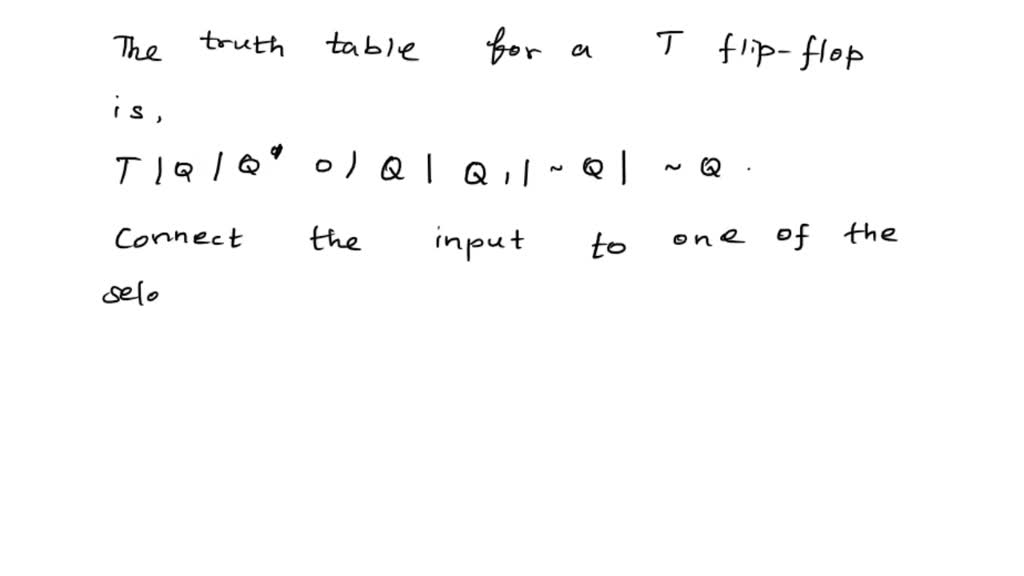 The truth table for a T flip-flop
is,
T | Q | Q* 0 | Q | Q, | ~ Q | ~ Q .
Connect the input to one of the
selo